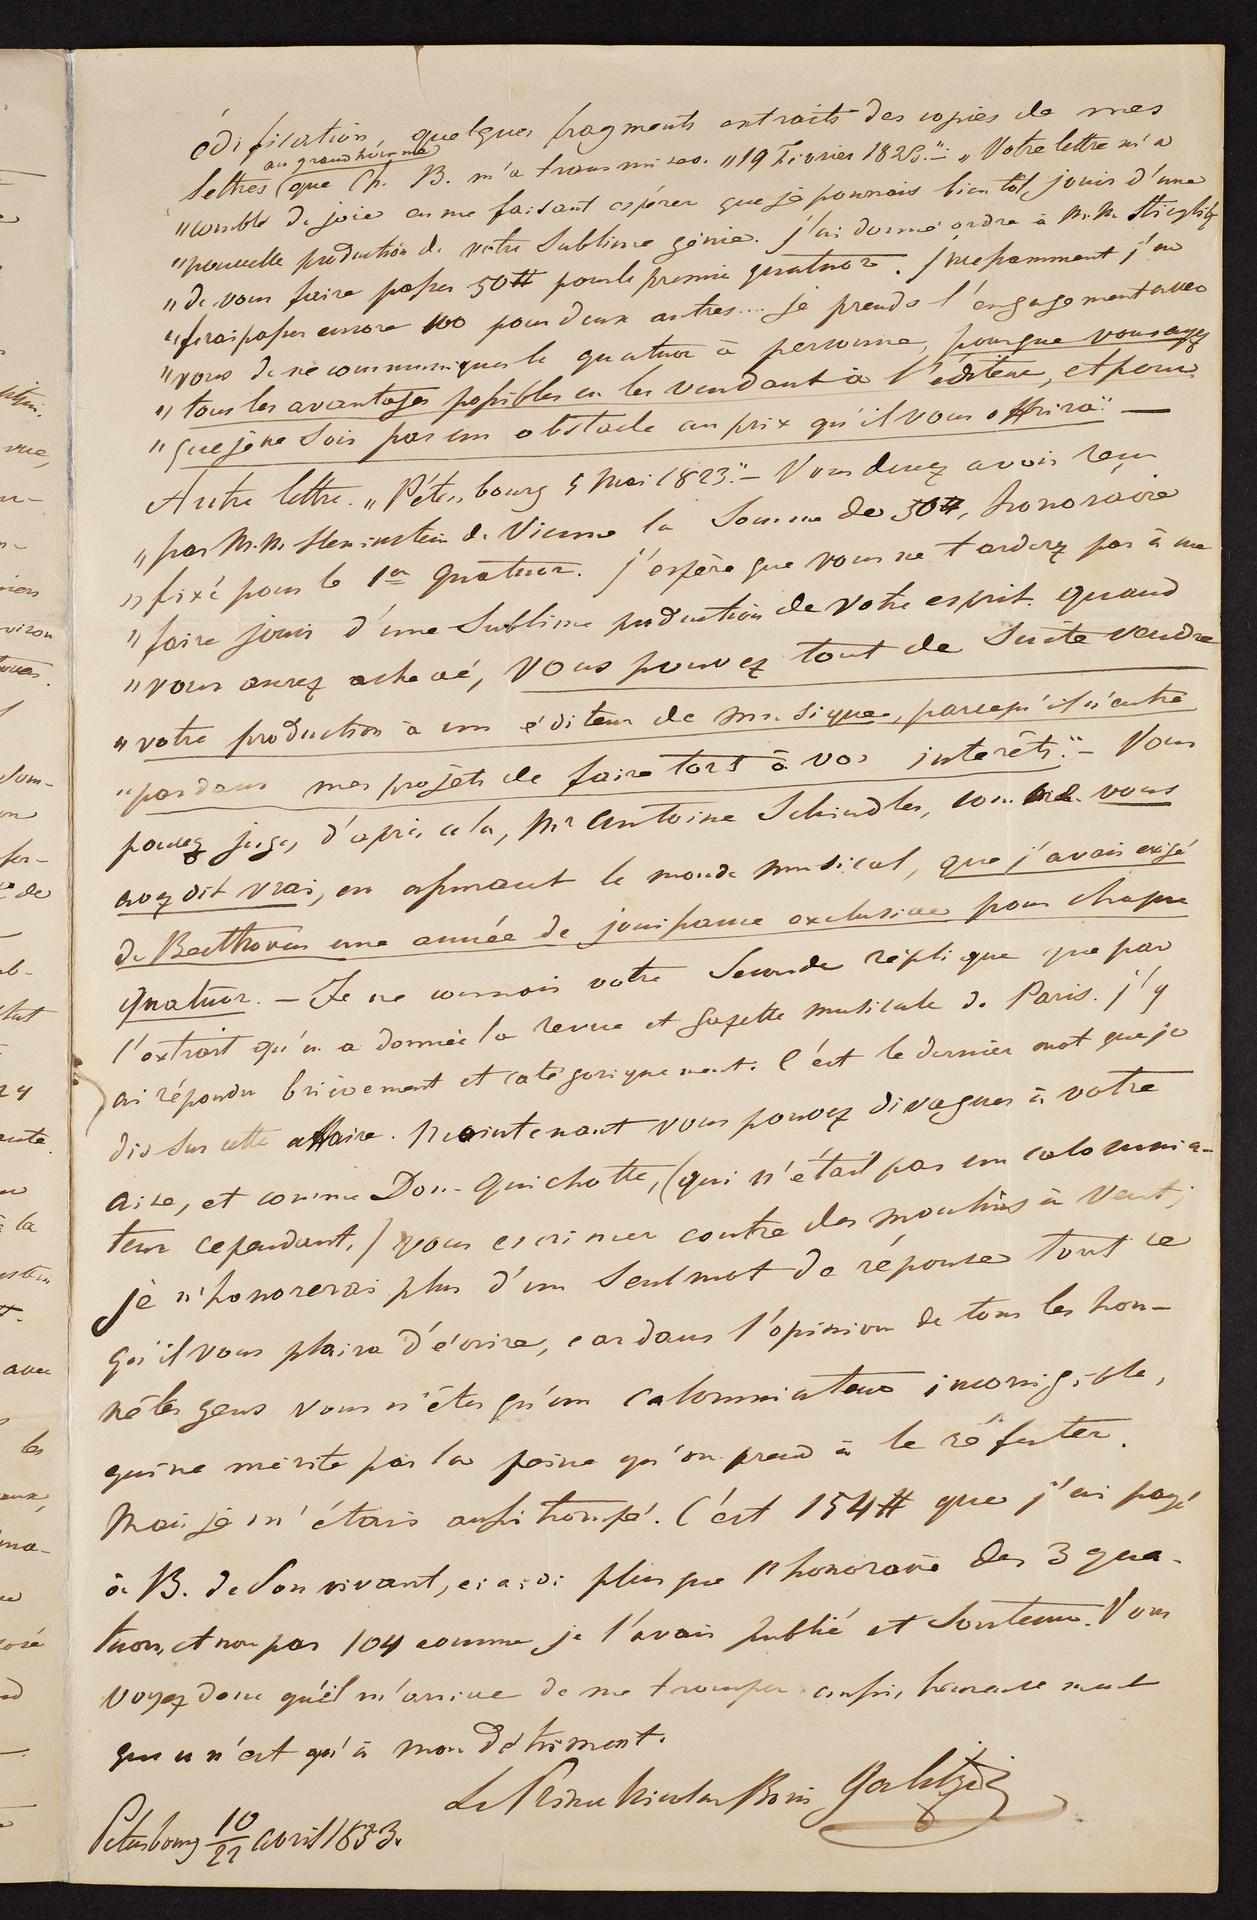 édification, quelques fragments extraits des copies de mes
au grand homme
lettres (que Ch. B. m'a transmises. "19 Février 1823." - "Votre lettre m'a
"comblé de joie en me faisant espérer que je pourrais bientôt jouir d'une
"nouvelle production de votre sublime génie. j'ai donné ordre à M.M. Stieglitz
"de vous faire passer 50# pour le premier quatuor. Incessamment j'en
"ferai passer encore 100 pour deux autres.... je prends l'engagement avec
"vous de ne communiquer le quatuor à personne, pourque vous ayez
"tous les avantages possibles en les vendant à l'éditeur, et pour
"que je ne sois pas un obstacle au prix qu'il vous offrira." —
Autre lettre. "Pétersbourg 5 Mai 1823." - Vous devez avoir reçu
"par M.M. Henicstein de Vienne la somme de 50#, honoraire
"fixé pour le 1er quatuor. j'espère que vous ne tarderez pas à me
"faire jouir d'une sublime production de votre esprit. quand
"vous aurez achevé, vous pouvez tout de suite vendre
"votre production à un éditeur de musique, parcequ'il n'entre
"pas dans mes projets de faire tort à vos interêts." - Vous
pouvez juger, d'après cela, Mr Antoine Schindler, comme vous
avez dit vrai, en assurant le monde musical, que j'avais exigé
de Beethoven une année de jouissance exclusive pour chaque
quatuor. - Je ne connais votre seconde réplique que par
l'extrait qu'en a donnée la revue et gazette musicale de Paris. j'y
ai répondu brièvement et catégoriquement. C'est le dernier mot que je
dis sur cette affaire. Maintenant vous pouvez divaguer à votre
aise, et comme Don-Quichotte, (qui n'était pas un calomnia-
teur cependant,) vous escrimer contre des moulins à vent;
je n'honorerai plus d'un seul mot de réponse tout ce
qu'il vous plaira d'écrire, car dans l'opinion de tous les hon-
nêtes gens vous n'êtes qu'un calomniateur incorrigible,
qui ne mérite pas la peine qu'on prend à le réfuter.
Mais je m'étais aussi trompé. C'est 154# que j'ai payé
à B. de son vivant, plus que l'honoraire des 3 qua-
tuors, et non pas 104 comme je l'avais publié et soutenu. Vous
voyez donc qu'il m'arrive de me tromper aussi, heureusement
que ce n'est qu'à mon détriment.
Le Prince Nicolas Boris Galitzin
Petersbourg 10/22 avril 1853.